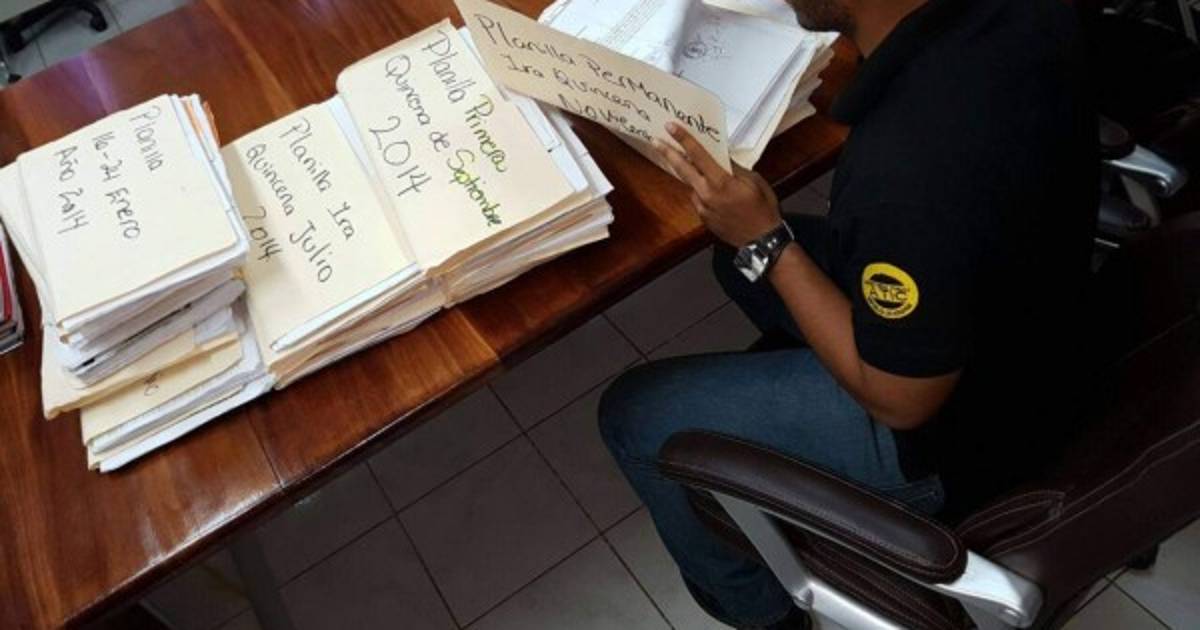 Planilla
16-24 Enero
Año 2014
Planilla 1ra
Quincena Julio
2014
Planilla Primera
Quincena de Septiembre
2014
Planilla Permanente
1ra Quincena
ATIC